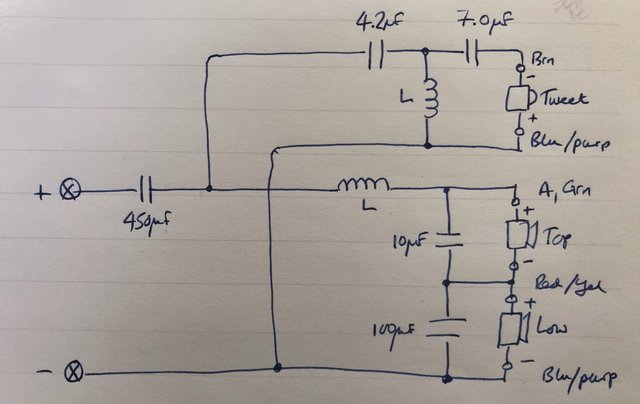 4.2µF
7.0µF
Brn
-
L
Tweet
+
Blu/purp
+
450µF
L
A, Grn
+
10µF
Top
-
Red/Yel
+
100µF
Low
-
-
Blu/purp